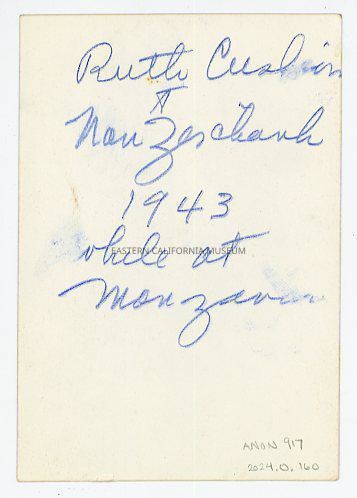 Ruth Cushion
&
Nan Zeschank
1943
while at
EASTERN CALIFORNIA MUSEUM
Manzanar
ANON 917
2024.0.160